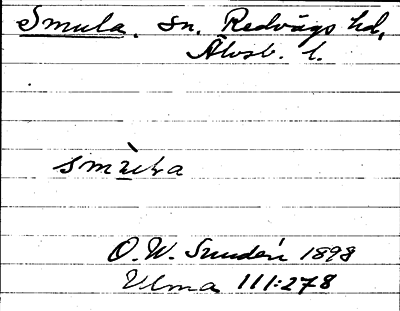 Smula. sn. Redvägs hd,
Älvsb. l.
O.W. Sundén 1898
Ulma 111:278